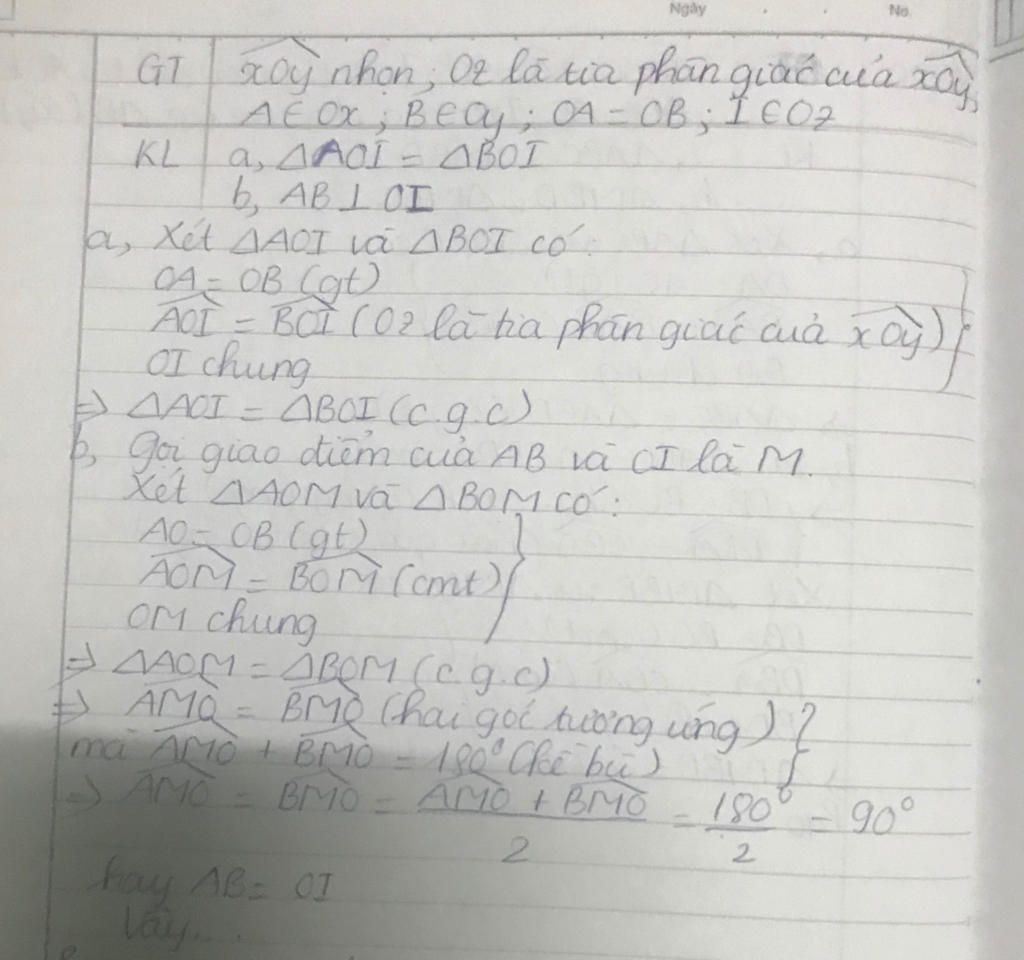 Ngày . . No.
GT | $\widehat{xOy}$ nhọn; Oz là tia phân giác của $\widehat{xOy}$,
A∈Ox; B∈Oy; OA = OB; I∈Oz
KL | a, ΔAOI = ΔBOI
b, AB⊥OI
a, Xét ΔAOI và ΔBOI có:
OA = OB (gt)
$\widehat{AOI}$ = $\widehat{BOI}$ (Oz là tia phân giác của $\widehat{xOy}$) }
OI chung
=> ΔAOI = ΔBOI (c.g.c)
b, Gọi giao điểm của AB và OI là M.
Xét ΔAOM và ΔBOM có:
AO = OB (gt)
$\widehat{AOM}$ = $\widehat{BOM}$ (cmt) }
OM chung
=> ΔAOM = ΔBOM (c.g.c)
=> $\widehat{AMO}$ = $\widehat{BMO}$ (hai góc tương ứng) }
mà $\widehat{AMO}$ + $\widehat{BMO}$ = 180° (kề bù)
=> $\widehat{AMO}$ = $\widehat{BMO}$ = $\frac{\widehat{AMO} + \widehat{BMO}}{2}$ = $\frac{180°}{2}$ = 90°
hay AB = OI
Vậy...